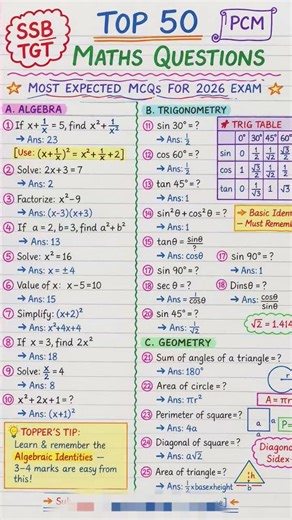 SSB
TGT
TOP 50
PCM
MATHS QUESTIONS
MOST EXPECTED MCQs FOR 2026 EXAM
A. ALGEBRA
① If x+1/x = 5, find x²+1/x²
→ Ans: 23
[Use: (x+1/x)² = x²+1/x²+2]
② Solve: 2x+3=7
→ Ans: 2
③ Factorize: x²−9
→ Ans: (x-3)(x+3)
④ If a=2, b=3, find a²+b²
→ Ans: 13
⑤ Solve: x²=16
→ Ans: x=±4
⑥ Value of x: x−5=10
→ Ans: 15
⑦ Simplify: (x+2)²
→ Ans: x²+4x+4
⑧ If x=3, find 2x²
→ Ans: 18
⑨ Solve: x/2=4
→ Ans: 8
⑩ x²+2x+1=?
→ Ans: (x+1)²
TOPPER'S TIP:
Learn & remember the
Algebraic Identities —
3–4 marks are easy from
this!
B. TRIGONOMETRY
⑪ sin 30°=?
→ Ans: 1/2
⑫ cos 60°=?
→ Ans: 1/2
⑬ tan 45°=?
→ Ans: 1
⑭ sin²θ+cos²θ=?
→ Ans: 1
⑮ tanθ=sinθ/?
→ Ans: cosθ
⑰ sin 90°=?
→ Ans: 1
⑰ sin 90°=?
→ Ans: 1
⑱ sec θ=?
→ Ans=1/cosθ
⑱ Dinsθ=?
→ Ans: cosθ/sinθ
⑳ sin 45°=?
→ Ans: 1/√2
√2=1.414
TRIG TABLE
0° 30° 45° 60°
sin 0 1/2 1/√2 √3/2
cos 1 √3/2 1/√2 1/2
tan 0 1/√3 1 √3
Basic Iden
— Must Remem
C. GEOMETRY
㉑ Sum of angles of a triangle=?
→ Ans: 180°
㉒ Area of circle=?
→ Ans: πr²
r
A=πr
㉓ Perimeter of square=?
→ Ans: 4a
a
a
P=
㉔ Diagonal of square=?
→ Ans: a√2
Diagona
Side×
㉕ Area of triangle=?
→ Ans: 1/2×base×height
h
b